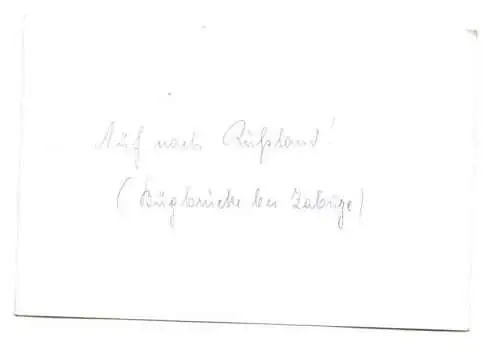 Auf nach Rußland!
(Bugbrücke bei Zabuze)